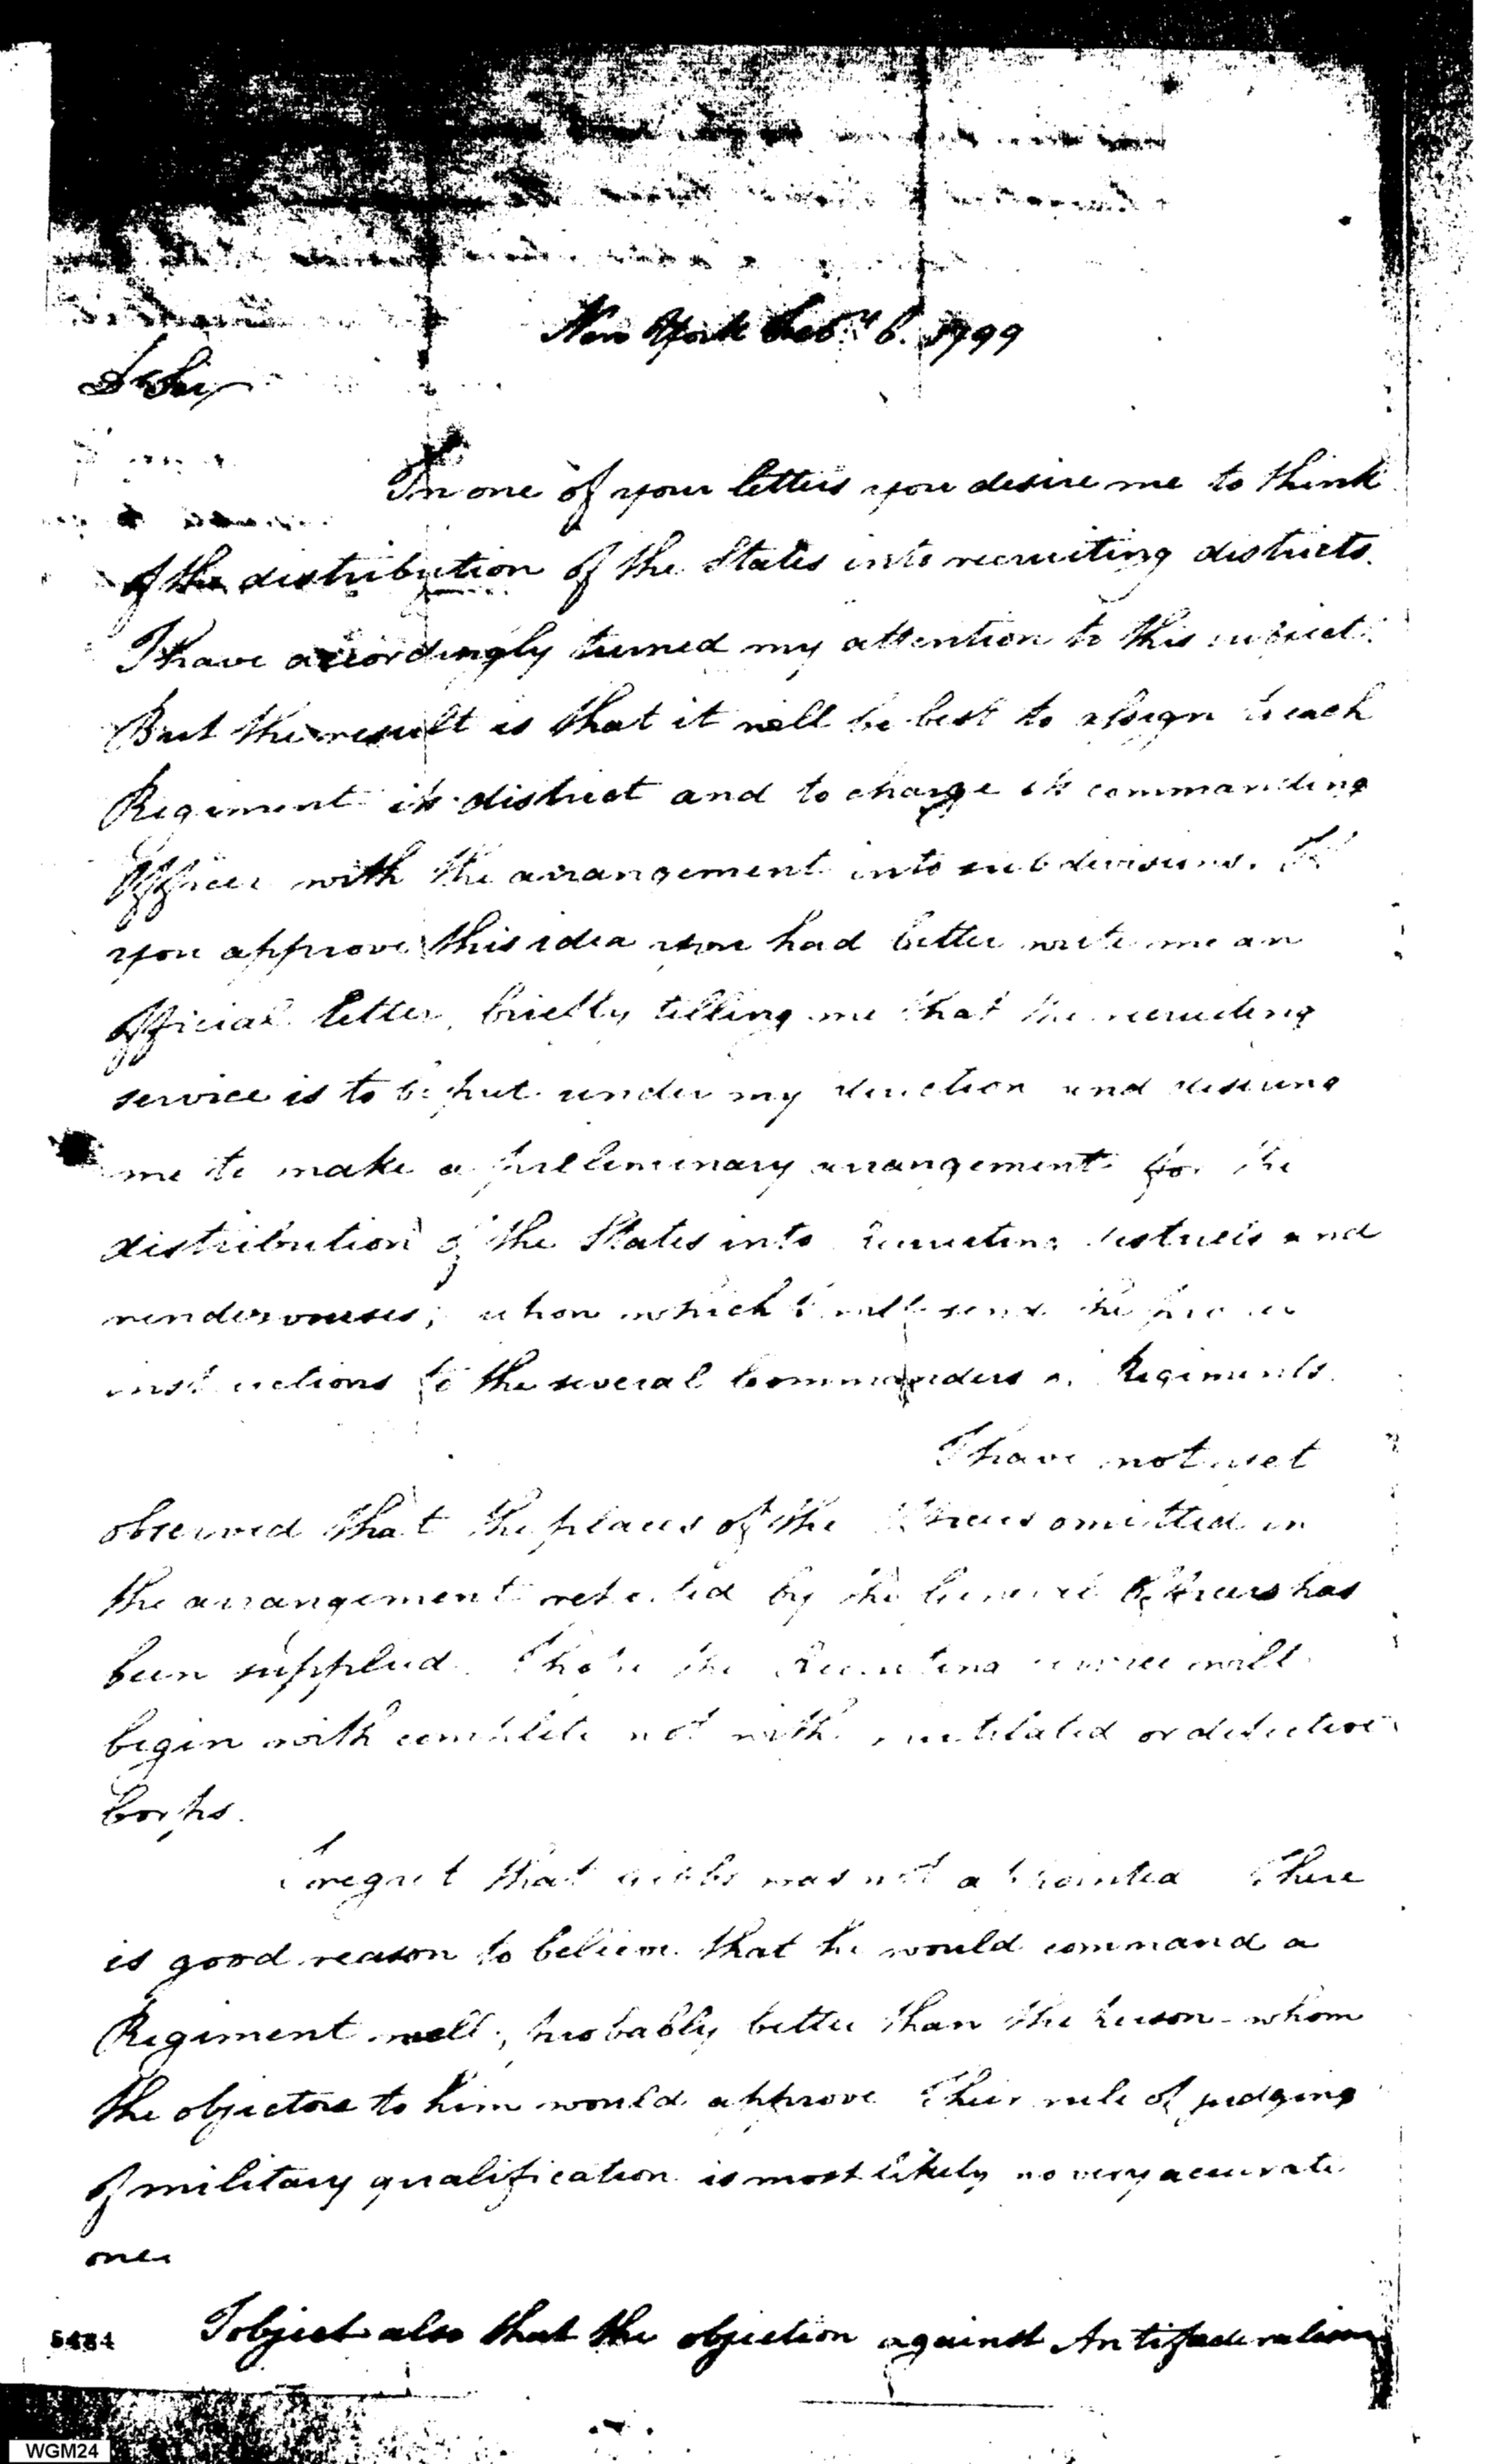 New York Feb.y 6. 1799
Dr Sir
In one of your letters you desire me to think
of the distribution of the States into recruiting districts.
I have accordingly turned my attention to this subject.
But the result is that it will be best to assign to each
Regiment its district and to charge its commanding
Officer with the arrangement into subdivisions. If
you approve this idea you had better write me an
official letter, briefly telling me that the recruiting
service is to be put under my direction and desiring
me to make a preliminary arrangement for the
distribution of the States into recruiting districts and
rendezvouses; upon which I will send the proper
instructions to the several Commanders of Regiments.
I have not yet
observed that the places of the Officers omitted in
the arrangement reported by the General Officers has
been supplied. I hope the Recruiting service will
begin with complete not with mutilated or defective
Corps.
I regret that Gibbs was not appointed There
is good reason to believe that he would command a
Regiment well, probably better than the person whom
the objectors to him would approve Their rule of judging
of military qualification is most likely no very accurate
one.
I object also that the objection against Antifederalism
5484
WGM24